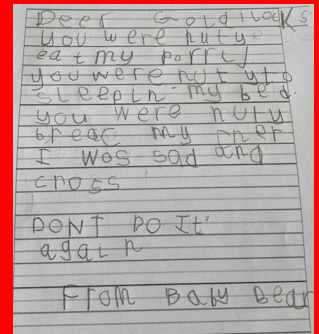 Deer Goldilocks
you were nuty
eat my porrij
you were nut yto
sleepin my bed.
you were nuty
breac my cher
I wos sad and
cross
DONT DO It'
again
From Baby Bear